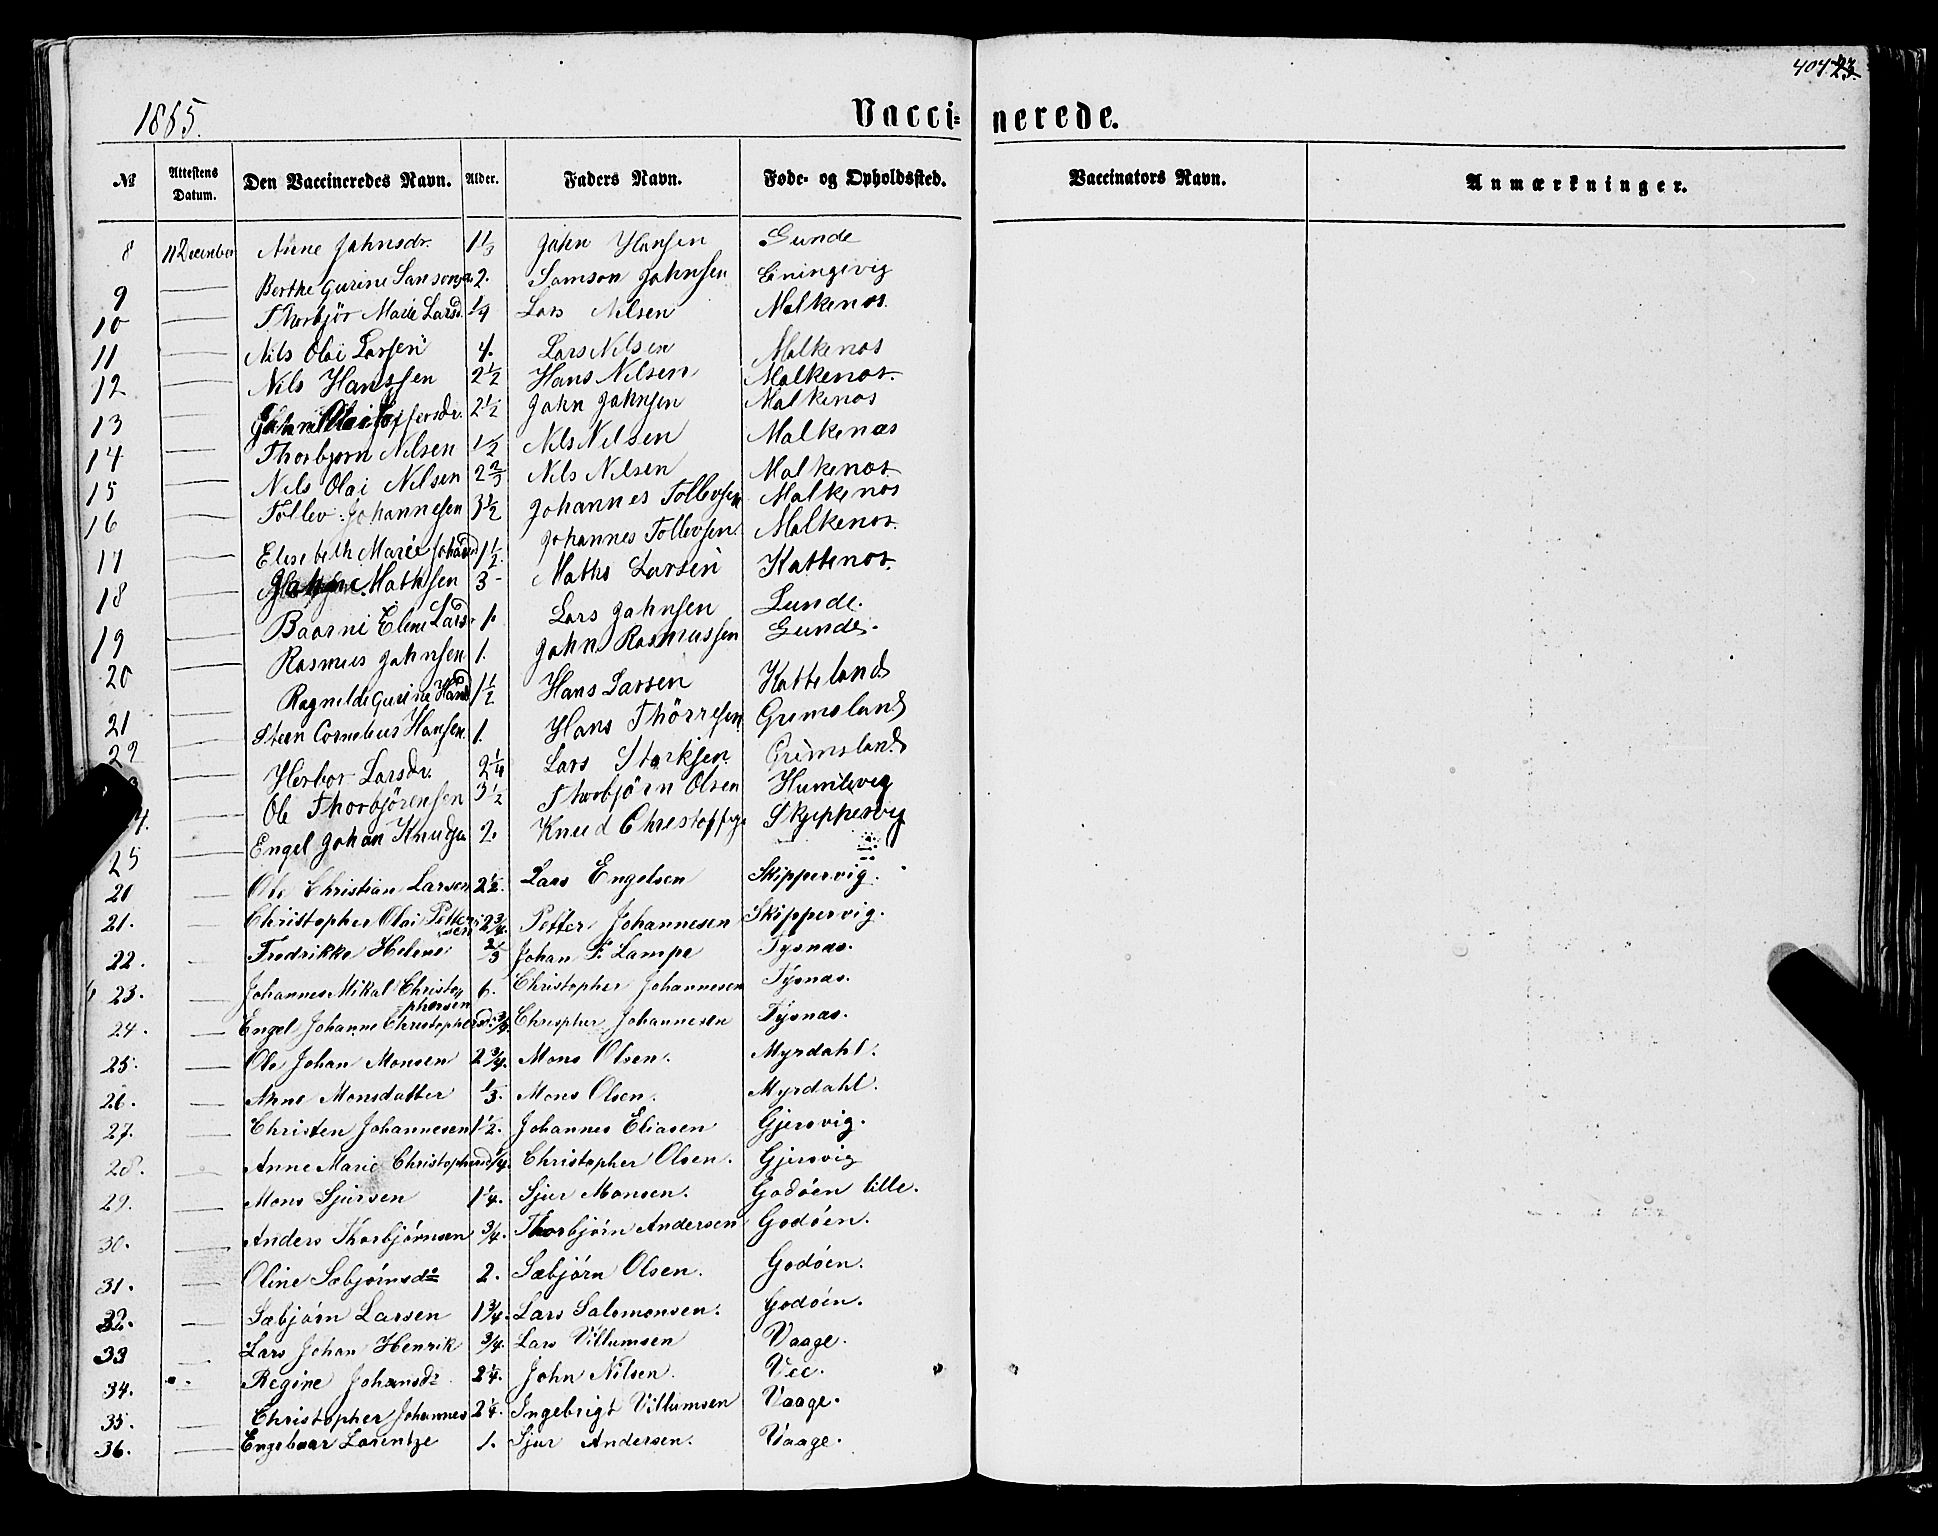 404
1865.
Vaccinerede.
№ Attestens Datum. Den Vaccineredes Navn. Alder. Faders Navn. Føde- og Opholdssted. Vaccinators Navn. Anmærkninger.
8 December Anne Johnsdr. 1 1/3 John Hansen Gunde
9 — Berthe Gurine 2. Samson Johnsen
10 — Thorbjör Marie Larsd. 1/4 Lars Nilsen Malkenos
11 — Nils Olai Larsen 4. Lars Nilsen Malkenos
12 — Nils Hanssen 2 1/2 Hans Nilsen Malkenos.
13 — 2 1/2 John Johnsen Malkenos
14 — Thorbjorn Nilsen 1 1/2 Nils Nilsen Malkenæs
15 — Nils Olai Nilsen 2 2/3 Nils Nilsen Malkenos
16 — Tollev Johannesen 3 1/2 Johannes Tollevsen Malkenos
17 — Elisebeth Marie 1 1/2 Johannes Tollevsen. Malkenos.
18 — Mathsen 3 - Maths Larsen Kattenos.
19 — Baarni Eline Larsd. 1. Lars Johnsen Lunde.
20 — Rasmus Johnsen 1. John Rasmussen Gunde.
21 — Ragnilde Gurine Hansd 1 1/2 Hans Larsen Katteland
22 — Steen Cornelius Hansen. 1. Hans Thörresen Gremsland
— Herbor Larsdr. 2 1/4 Lars Storksen Grimsland
4. — Ole Thorbjörensen 3 1/2 Thorbjörn Olsen Humlevig
25 — Engel Johan Knudsen 2. Knud Skjippervig
20 — Ole Christian Larsen 2 1/2. Lars Engelsen Skippervig.
21. — Christopher Olai Pettersen 2 3/4. Petter Johannesen Skippervig.
22. — Fredrikke Helene 2/3 Johan F. Lampe Tysnæs.
23. — Johannes Mikal Christophersen 6. Christopher Johannesen Tysnæs.
24. — Engel Johanne Christophersd: 3/4 Chrispher Johannesen Tysnæs.
25. — Ole Johan Monsen 2 3/4. Mons Olsen. Myrdahl.
26. — Anne Monsdatter 1/3. Mons Olsen. Myrdahl.
27. — Christen Johannesen 1 1/2. Johannes Eliasen Gjersvig.
28. — Anne Marie Christophersd 1/4. Christopher Olsen. Gjersvig
29. — Mons Sjursen 1 1/4. Sjur Monsen. Godöen lille.
30. — Anders Thorbjörnsen 3/4. Thorbjörn Andersen Godöen.
31. — Oline Sæbjörnsdr 2. Sæbjörn Olsen. Godöen.
32. — Sæbjörn Larsen 1 3/4. Lars Salomonsen. Godöen.
33 — Lars Johan Henrik 3/4. Lars Villumsen Vaage.
34. Regine Johansdr 2 1/4. John Nilsen. Vee.
35. — Christopher Johannes 2 1/4. Ingebrigt Villumsen Vaage.
36. — Engebaar Lorentze 1. Sjur Andersen. Vaage.